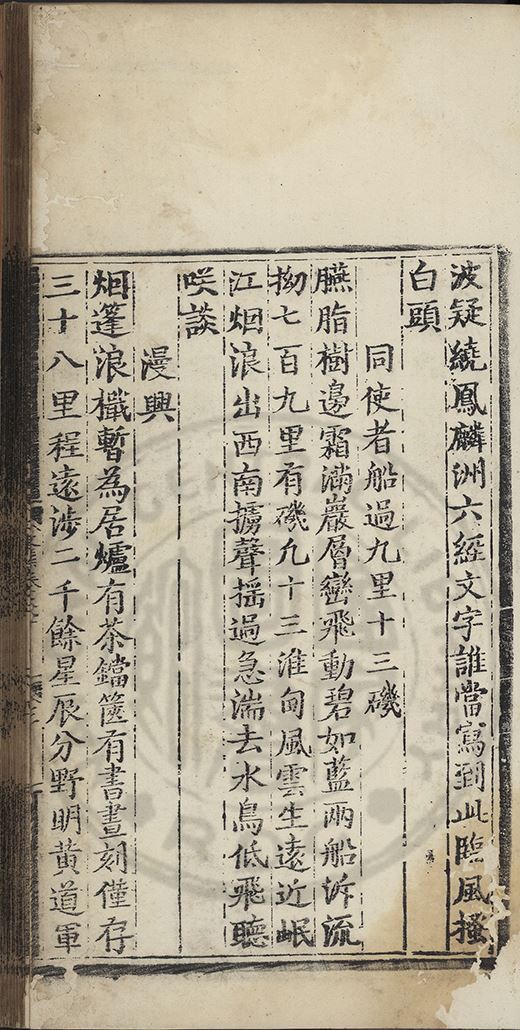 波疑繞鳳麟洲六經文字誰當寫到此臨風搔
白頭
同使者船過九里十三磯
臙脂樹邊霜滿巖層巒飛動碧如藍兩船泝流
拗七百九里有磯凢十三淮甸風雲生遠近岷
江烟浪出西南擄聲揺過急湍去水鳥低飛聽
咲談
漫興
烟蓬浪檥暫為居爐有茶鐺篋有書晝刻僅存
三十八里程遠涉二千餘星辰分野明黄道軍